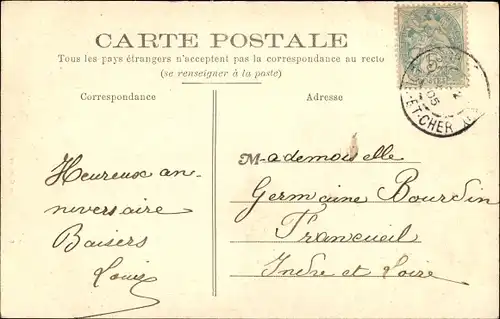 CARTE POSTALE
Tous les pays étrangers n'acceptent pas la correspondance au recto
(se renseigner à la poste)
Correspondance
Adresse
Heureux an-
niversaire
Baisers
Louis
Mademoiselle
Germaine Bourdin
Francueil
Indre et Loire
ET-CHER
05